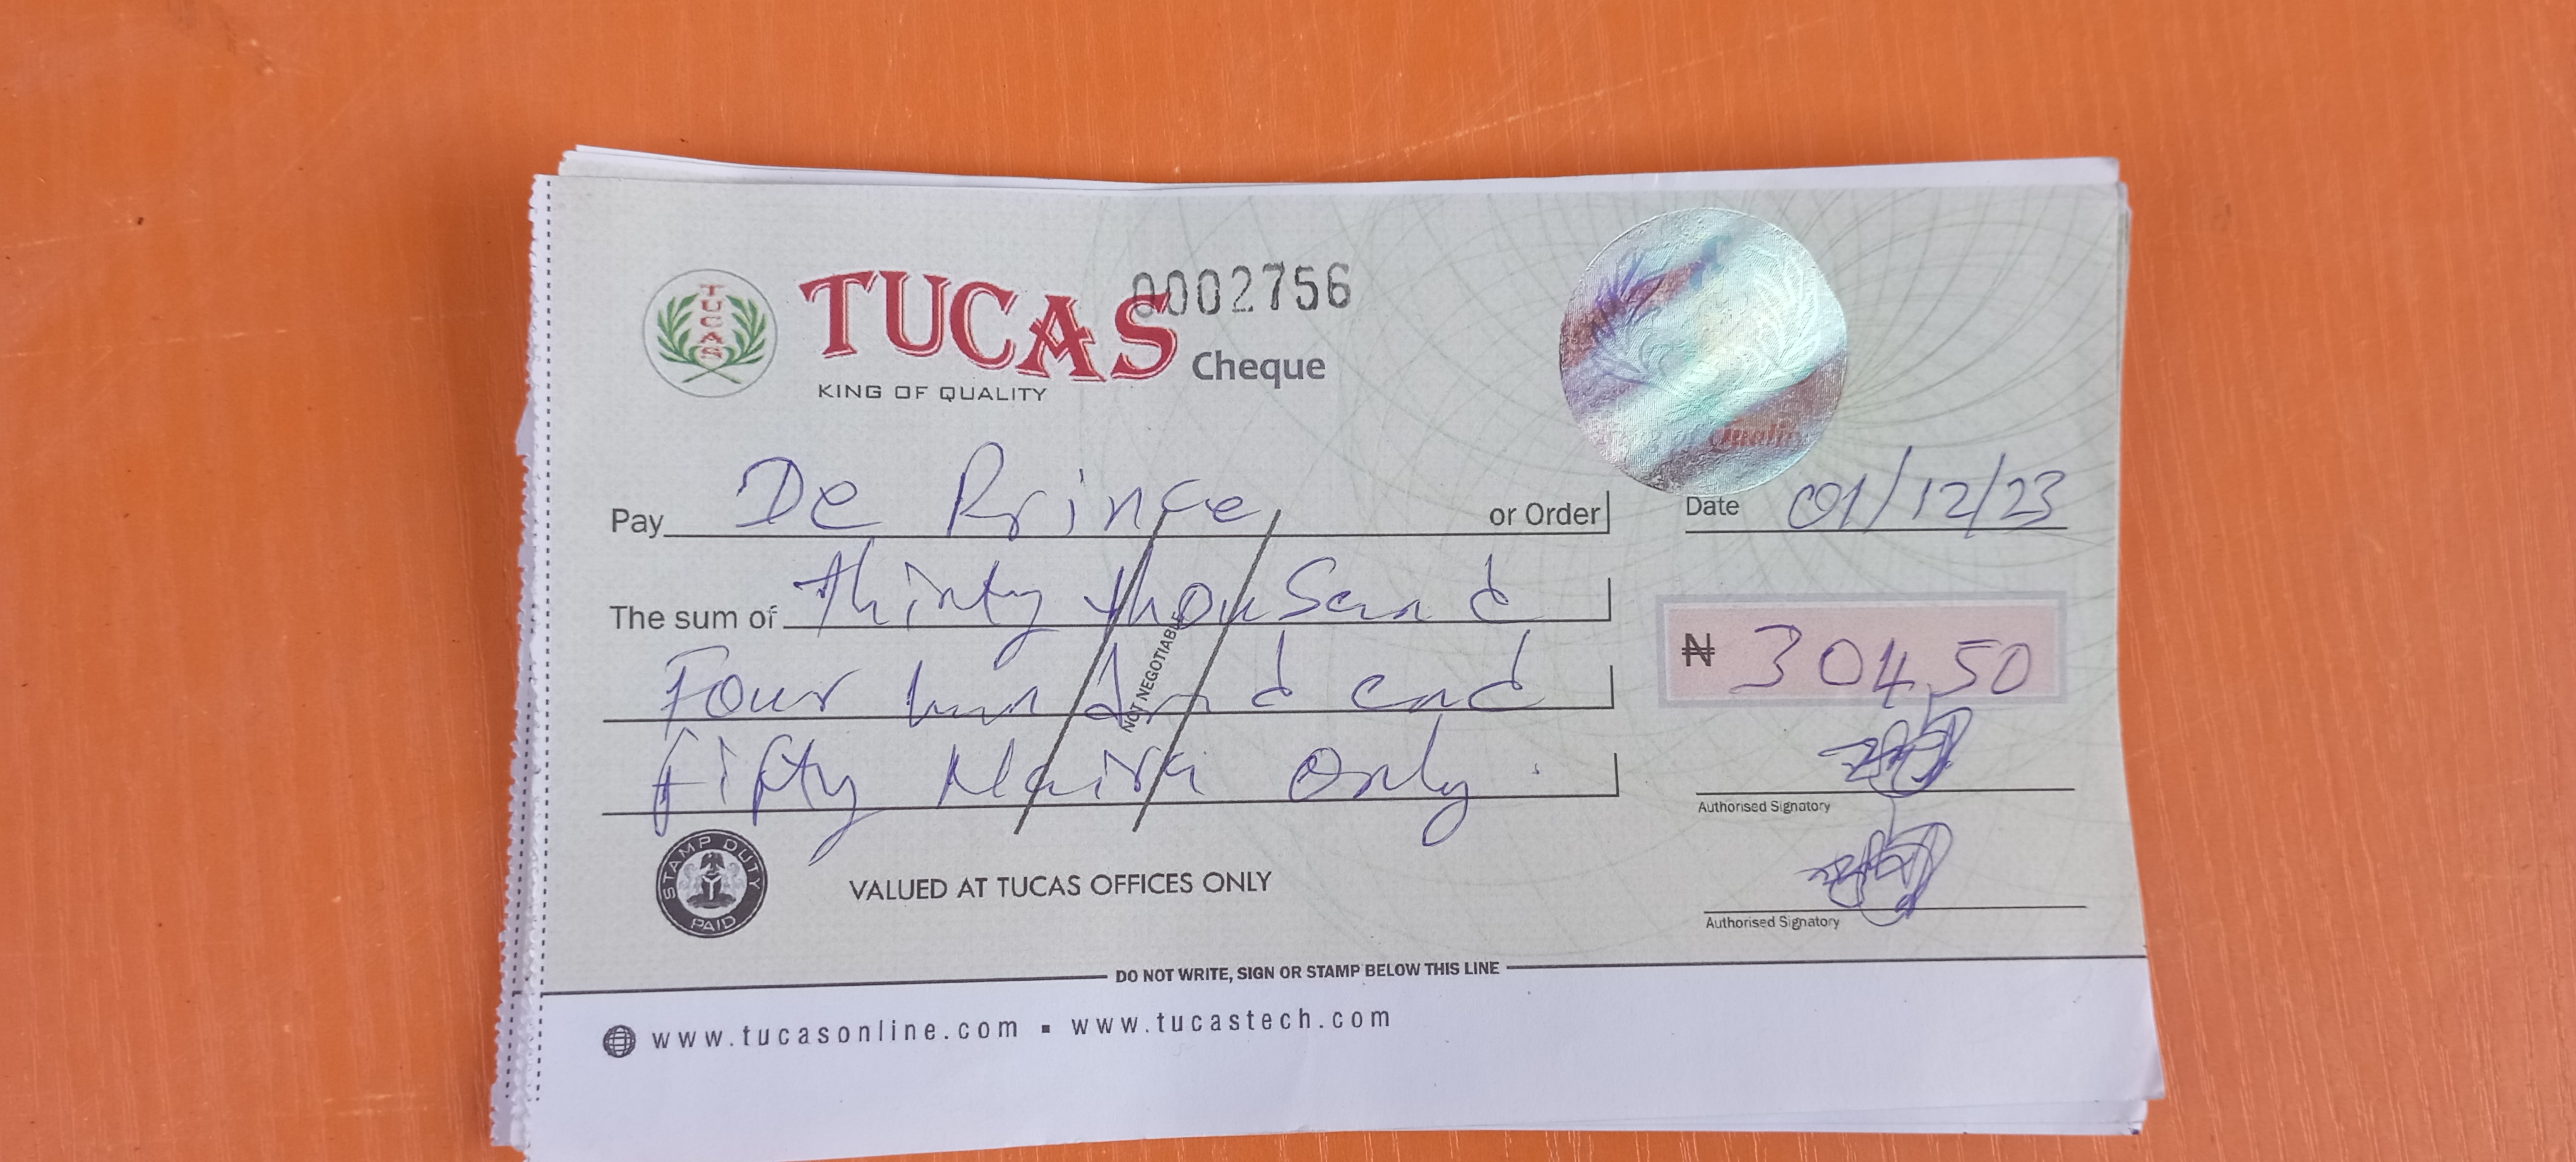 0002756
TUCAS
TUCAS Cheque
KING OF QUALITY
Quality
Pay De Prince or Order
Date 01/12/23
The sum of thirty thousand
Four hundred and
fifty Naira only.
NOT NEGOTIABLE
₦ 30450
Authorised Signatory
Authorised Signatory
STAMP DUTY PAID
VALUED AT TUCAS OFFICES ONLY
DO NOT WRITE, SIGN OR STAMP BELOW THIS LINE
www.tucasonline.com ▪ www.tucastech.com